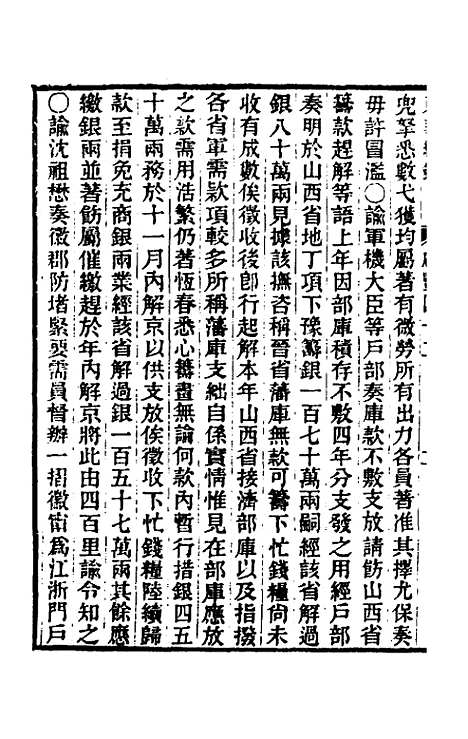 兜拏悉數弋獲均屬著有微勞所有出力各員著准其擇尤保奏
毋許冒濫〇諭軍機大臣等戶部奏庫款不敷支放請飭山西省
籌款趕解等語上年因部庫積存不敷四年分支發之用經戶部
奏明於山西省地丁項下豫籌銀一百七十萬兩嗣經該省解過
銀八十萬兩見據該撫咨稱晉省藩庫無款可籌下忙錢糧尚未
收有成數俟徵收後卽行起解本年山西省接濟部庫以及指撥
各省軍需款項較多所稱藩庫支絀自係實情惟見在部庫應放
之款需用浩繁仍著恆春悉心籌畫無論何款內暫行措銀四五
十萬兩務於十一月內解京以供支放俟徵收下忙錢糧陸續歸
款至捐免充商銀兩業經該省解過銀一百五十七萬兩其餘應
繳銀兩並著飭屬催繳趕於年內解京將此由四百里諭令知之
〇諭沈祖懋奏徽郡防堵緊要需員督辦一摺徽甯爲江浙門戶